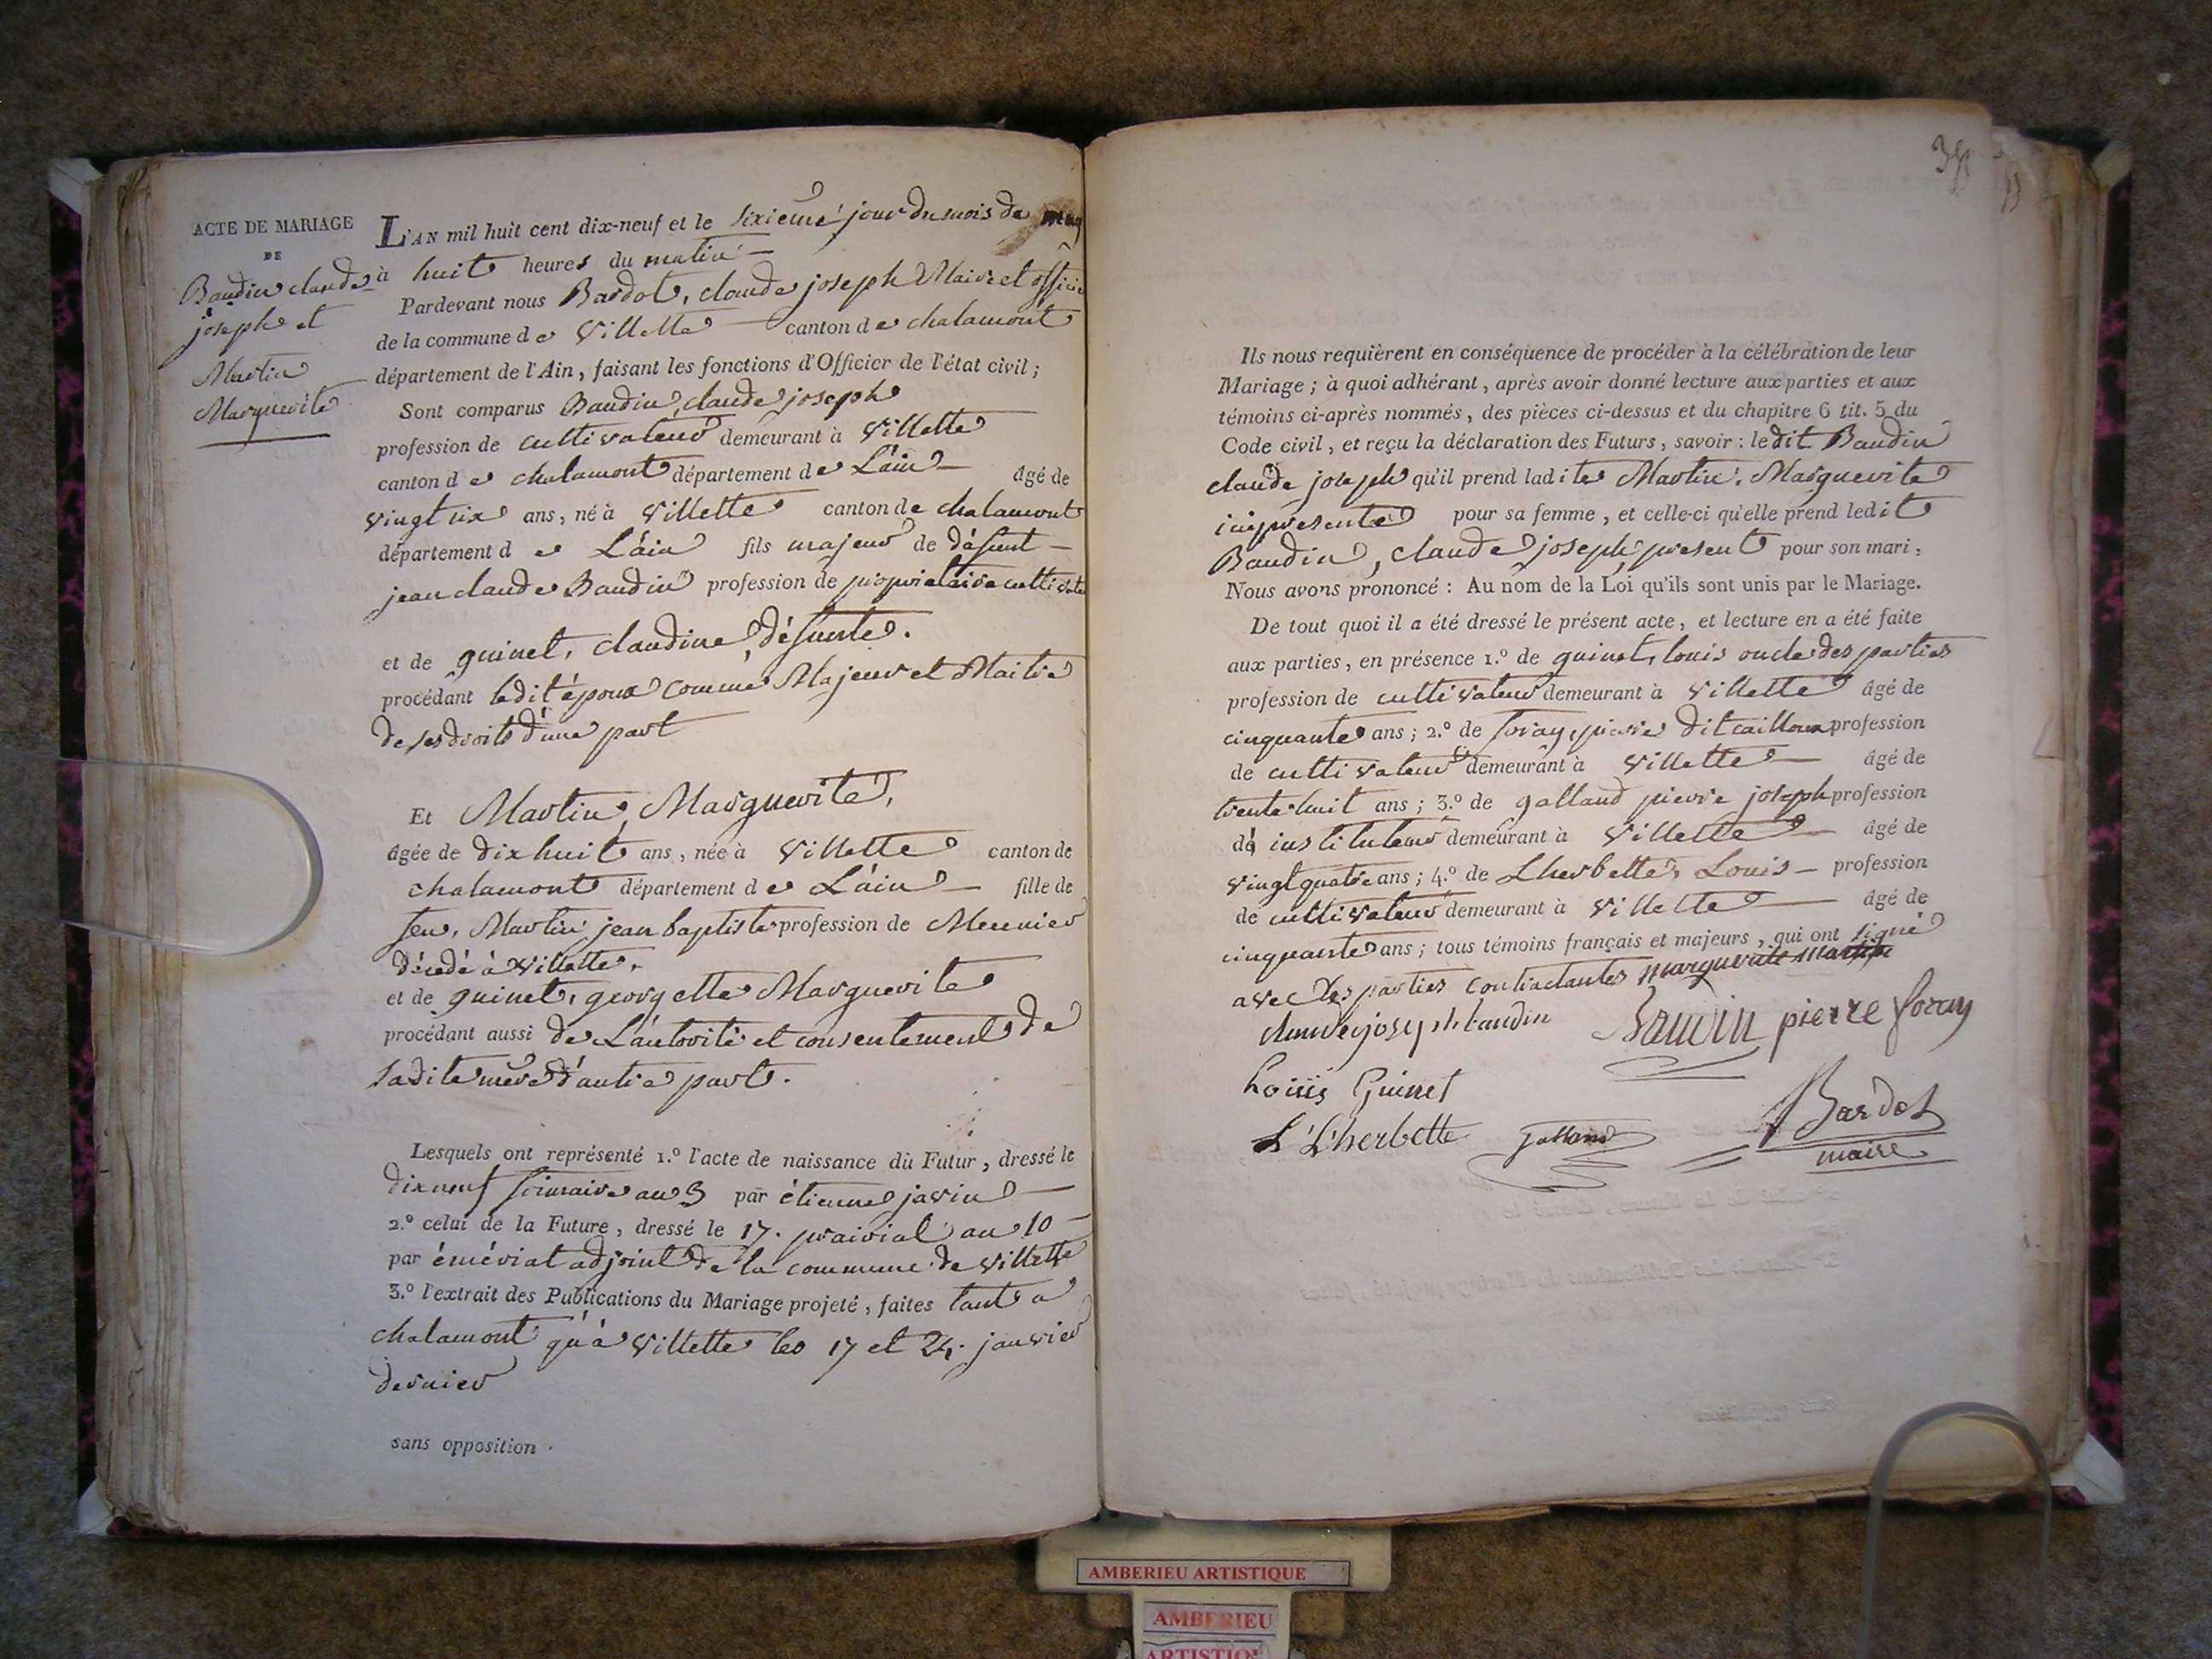 ACTE DE MARIAGE
DE
Baudin claude
joseph et
Martin
Marguerite
L'AN mil huit cent dix-neuf et le sixieme jour du mois de may
à huit heures du matin
Pardevant nous Bardot, claude joseph Maire et officier
de la commune de Villette canton de chalamont
département de l'Ain, faisant les fonctions d'Officier de l'état civil ;
Sont comparus Baudin, claude joseph
profession de cultivateur demeurant à Villette
canton de chalamont département de L'ain âgé de
vingt six ans, né à Villette canton de chalamont
département de L'ain fils majeur de défunt
jean claude Baudin profession de propriétaire cultivate
et de guinet, claudine, défunte.
procédant ledit époux comme Majeur et Maitre
de ses droits d'une part
Et Martin, Marguerite,
âgée de dix huit ans, née à Villette canton de
chalamont département de L'ain fille de
feu, Martin jean baptiste profession de Meunier
décédé à Villette,
et de guinet, georgette Marguerite
procédant aussi de L'autorité et consentement de
sadite mère d'autre part.
Lesquels ont représenté 1.º l'acte de naissance du Futur, dressé le
dix neuf frimaire an 3 par étienne javin
2.º celui de la Future, dressé le 17. prairial an 10
par émériat adjoint de la commune de Villette
3.º l'extrait des Publications du Mariage projeté, faites tant a
chalamont qu'à Villette les 17 et 24. janvier
dernier
sans opposition.
Ils nous requièrent en conséquence de procéder à la célébration de leur
Mariage ; à quoi adhérant, après avoir donné lecture aux parties et aux
témoins ci-après nommés, des pièces ci-dessus et du chapitre 6 tit. 5 du
Code civil, et reçu la déclaration des Futurs, savoir : ledit Baudin
claude joseph qu'il prend ladite Martin, Marguerite
ici présente pour sa femme, et celle-ci qu'elle prend ledit
Baudin, claude joseph present pour son mari,
Nous avons prononcé : Au nom de la Loi qu'ils sont unis par le Mariage.
De tout quoi il a été dressé le présent acte, et lecture en a été faite
aux parties, en présence 1.º de guinet, louis oncle des parties
profession de cultivateur demeurant à Villette âgé de
cinquante ans ; 2.º de foray, pierre dit cailloux profession
de cultivateur demeurant à Villette âgé de
trente huit ans ; 3.º de galland pierre joseph profession
de instituteur demeurant à Villette âgé de
vingt quatre ans ; 4.º de Lherbette, Louis profession
de cultivateur demeurant à Villette âgé de
cinquante ans ; tous témoins français et majeurs, qui ont signé
avec les parties contractantes marguerite martin
claude joseph baudin pierre foray
Louis Guinet
L'Lherbette galland Bardot
maire
AMBERIEU ARTISTIQUE
AMBERIEU
ARTISTIQUE